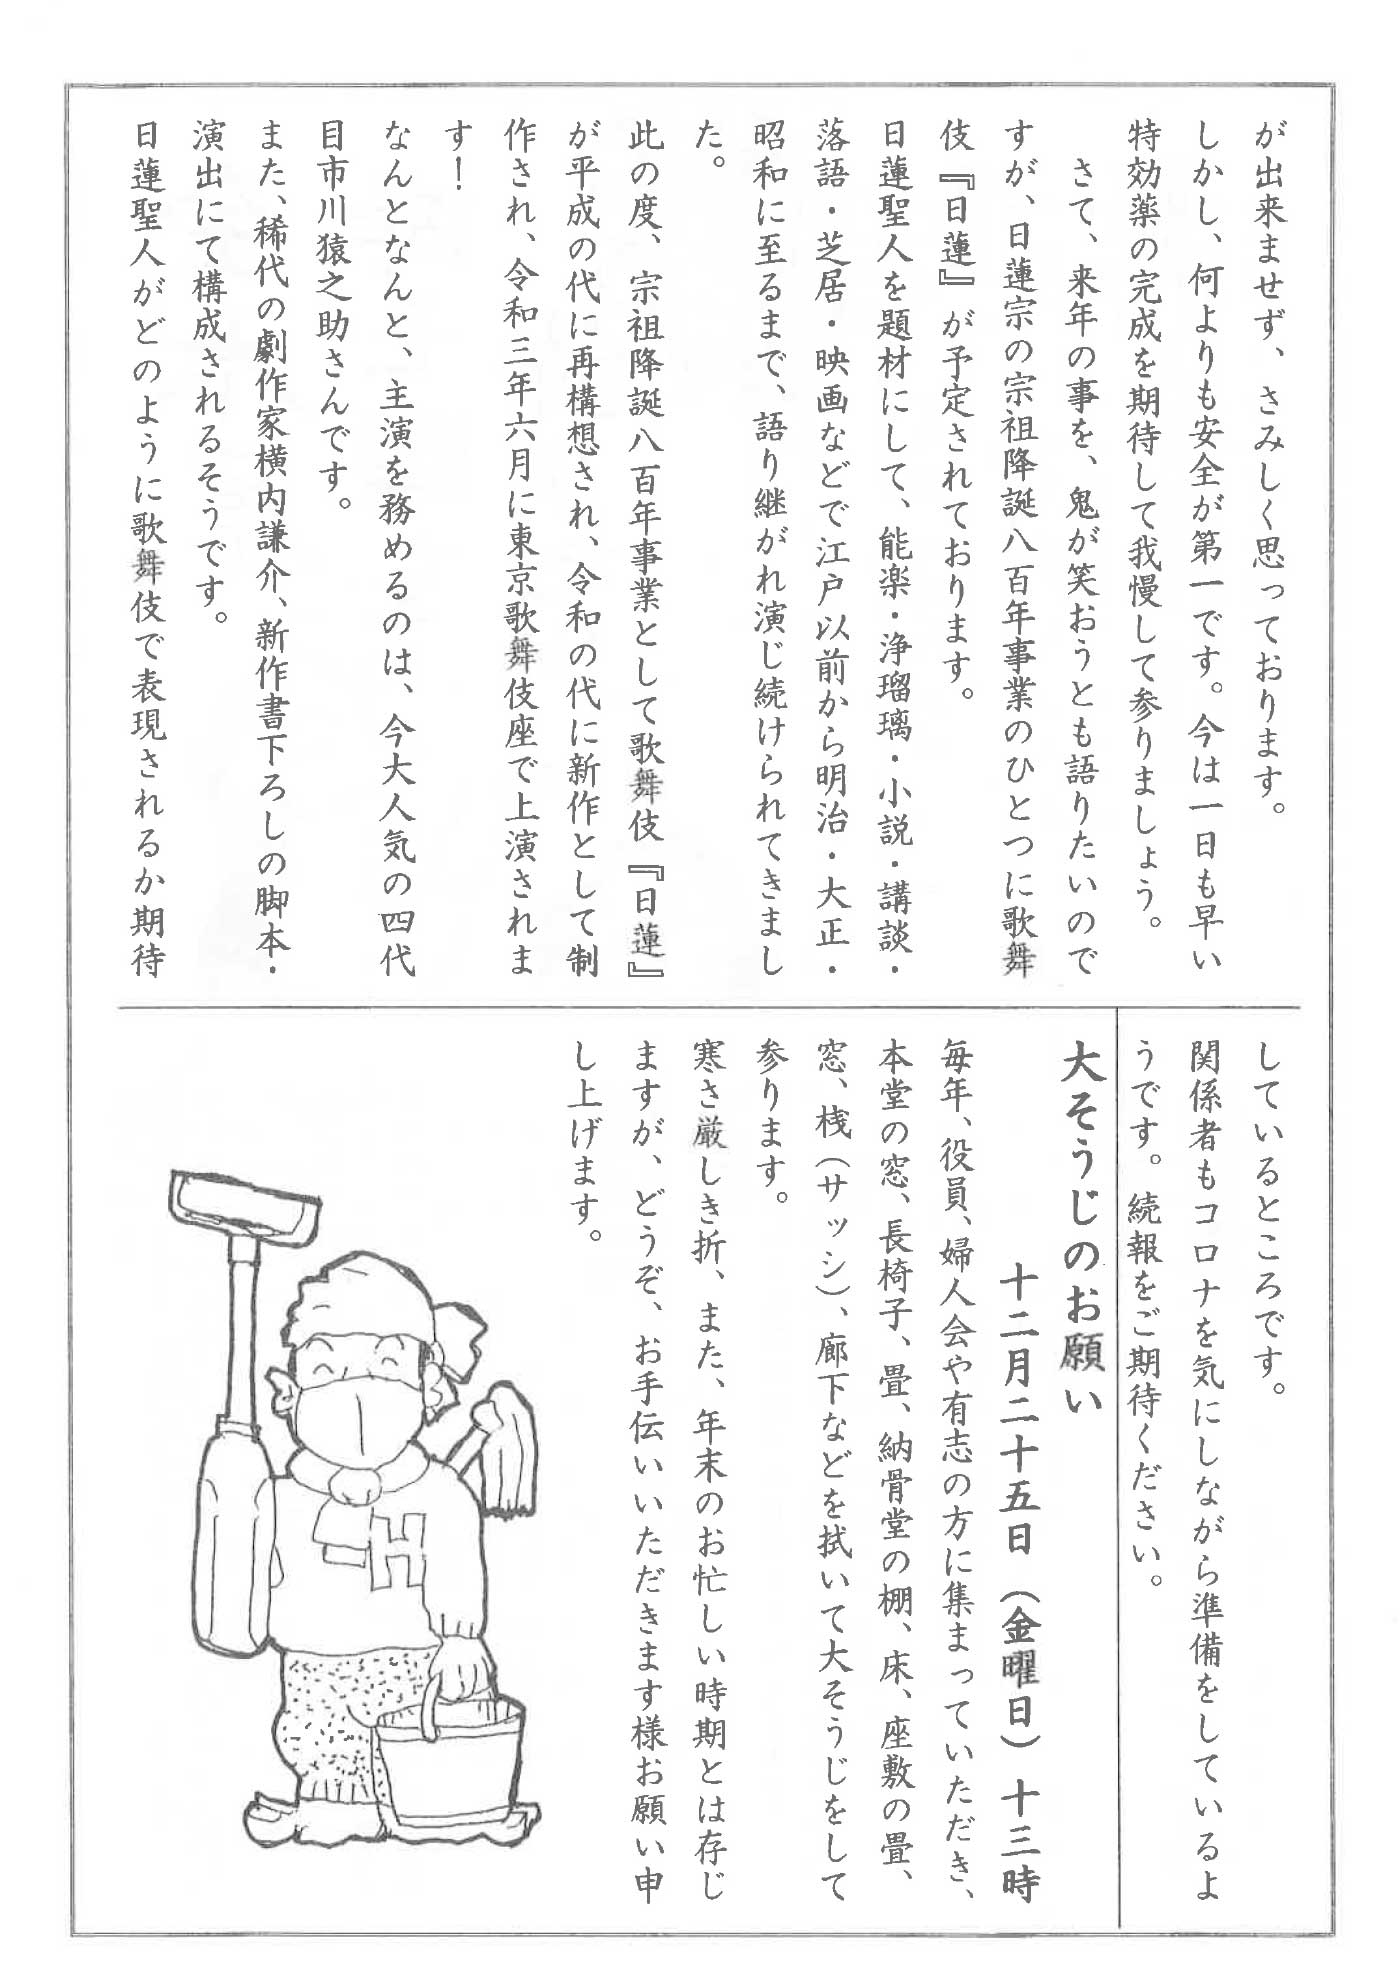 が出来ませず、さみしく思っております。
しかし、何よりも安全が第一です。今は一日も早い
特効薬の完成を期待して我慢して参りましょう。
さて、来年の事を、鬼が笑おうとも語りたいので
すが、日蓮宗の宗祖降誕八百年事業のひとつに歌舞
伎『日蓮』が予定されております。
日蓮聖人を題材にして、能楽・浄瑠璃・小説・講談・
落語・芝居・映画などで江戸以前から明治・大正・
昭和に至るまで、語り継がれ演じ続けられてきまし
た。
此の度、宗祖降誕八百年事業として歌舞伎『日蓮』
が平成の代に再構想され、令和の代に新作として制
作され、令和三年六月に東京歌舞伎座で上演されま
す！
なんとなんと、主演を務めるのは、今大人気の四代
目市川猿之助さんです。
また、稀代の劇作家横内謙介、新作書下ろしの脚本・
演出にて構成されるそうです。
日蓮聖人がどのように歌舞伎で表現されるか期待
しているところです。
関係者もコロナを気にしながら準備をしているよ
うです。続報をご期待ください。
大そうじのお願い
十二月二十五日（金曜日）十三時
毎年、役員、婦人会や有志の方に集まっていただき、
本堂の窓、長椅子、畳、納骨堂の棚、床、座敷の畳、
窓、桟（サッシ）、廊下などを拭いて大そうじをして
参ります。
寒さ厳しき折、また、年末のお忙しい時期とは存じ
ますが、どうぞ、お手伝いいただきます様お願い申
し上げます。
H